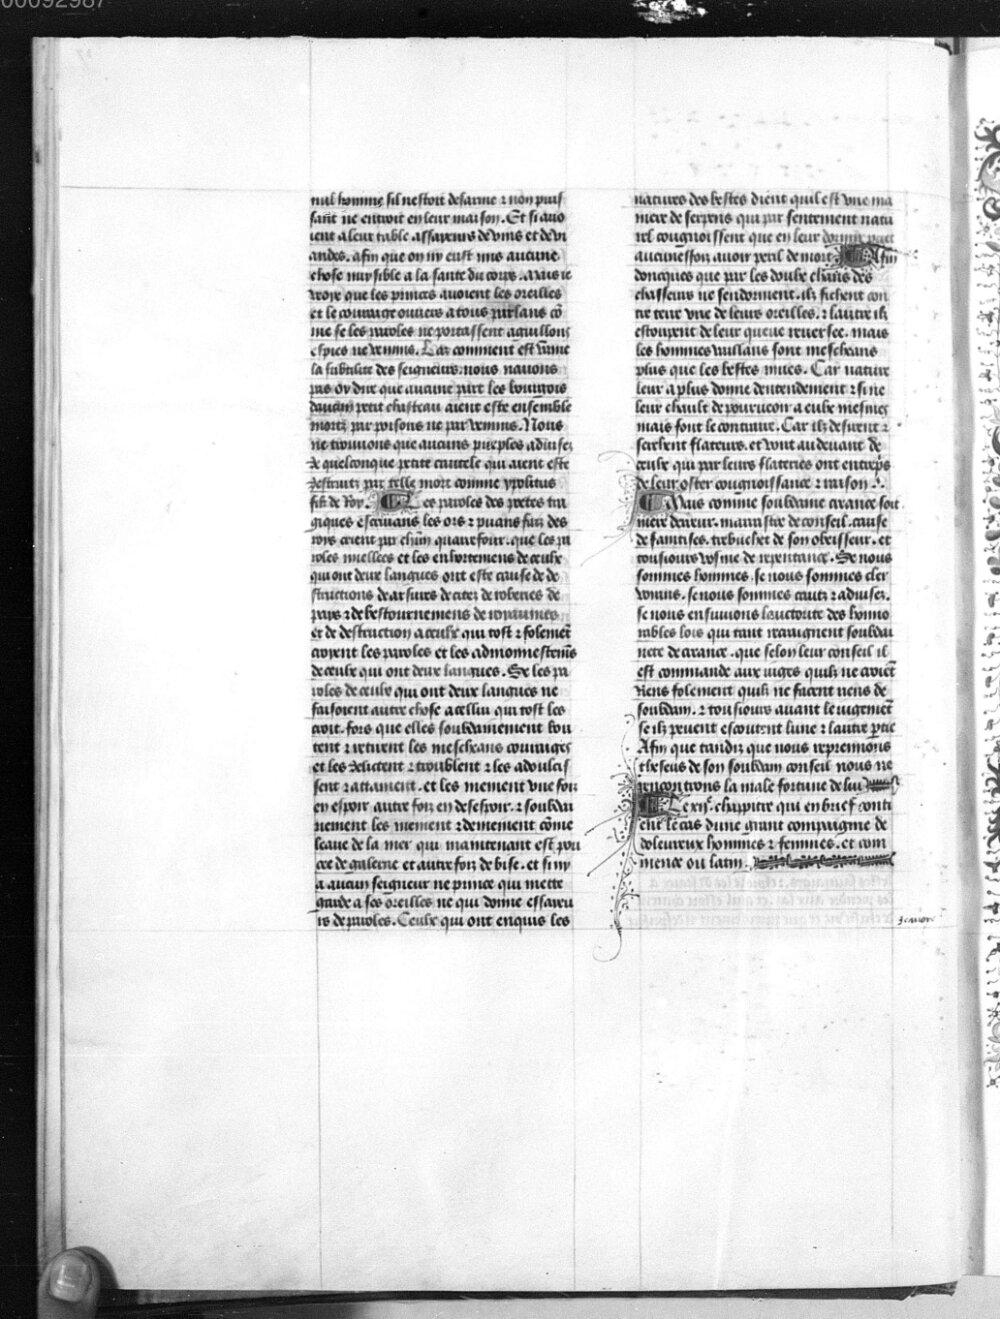 00092987
nul homme sil nestoit desarme ⁊ non puis
sant ne entroit en leur maison. Et si auo
ient a leur table assaieurs de vins et de vi
andes. afin que on ny eust mis aucune
chose nuysible a la sante du corps. Mais ie
voix que les princes auoient les oreilles
et le courage ouuers a tous parlans co
me se les paroles ne portassent aguillons
espies ne venins. Car comment est vaine
la subtilite des seigneurs. nous nauons
pas oy dire que aucune part les bourgois
daucun petit chasteau aient este ensemble
mortz par poisons ne par venins. Nous
ne trouuons que aucuns pueples aduises
de quelconque petite cautele qui aient este
destruitz par telle mort comme ypolitus
filz de Roy. Les paroles des poetes tra
giques escriuans les ors ⁊ puans faiz des
roys crient par chun quarrefour. que les pa
roles miellees et les enhortemens de ceulx
qui ont deux langues ont este cause de de
structions de arsures de citez de roberies de
pays ⁊ de bestournemens de royaumes
et de destruction a ceulx qui tost ⁊ folement
croyent les paroles et les admonnestemens
de ceulx qui ont deux langues. Se les pa
roles de ceulx qui ont deux langues ne
faisoient autre chose a cellui qui tost les
croit. fors que elles soubdainement bou
tent ⁊ tirent les meschans courages
et les delictent ⁊ troublent ⁊ les adoulcis
sent ⁊ attainent. et les mement vne fois
en espoir autre foiz en desespoir. ⁊ soubdai
nement les mement ⁊ demement come
leaue de la mer qui maintenant est pou
cee de galerne et autre foiz de bise. et si ny
a aucun seigneur ne prince qui mette
garde a ses oreilles ne qui donne essaieu
rs de paroles. Ceulx qui ont enquis les
natures des bestes dient quil est vne ma
niere de serpens qui par sentement natu
rel congnoissent que en leur dormir
aucuneffoiz auoir peril de mort Afin
doncques que par les doulx chans des
chasseurs ne sendorment. ilz fichent con
tre terre vne de leurs oreilles. ⁊ lautre ilz
estoupent de leur queue reuersee. mais
les hommes vaillans sont meschans
plus que les bestes mues. Car nature
leur a plus donne dentendement ⁊ si ne
leur chault de pourueoir a eulx mesmes
mais font le contraire. Car ilz desirent ⁊
serchent flateurs. et vont au deuant de
ceulx qui par leurs flateries ont entrepris
de leur oster congnoissance ⁊ raison.
Mais comme soubdaine creance soit
mere derreur. marrastre de conseil. cause
de faintises. trebuchet de son obeisseur. et
tousiours voisine de repentance. Se nous
sommes hommes. se nous sommes cler
voians. se nous sommes cautz ⁊ aduises.
se nous ensuiuons lauctorite des honno
rables lois qui tant repraignent soubdai
nete de creance. que selon leur conseil il
est commande aux iuges quilz ne croient
riens folement quilz ne facent riens de
soubdain. ⁊ tousiours auant le iugement
se ilz peuent escoutent lune ⁊ lautre partie
Afin que tandiz que nous reprennons
theseus de son soubdain conseil nous ne
rencontrons la male fortune de lui
Le xii.e chappitre qui en brief conti
ent le cas dune grant compaignie de
doleureux hommes ⁊ femmes. et com
mence ou latin.